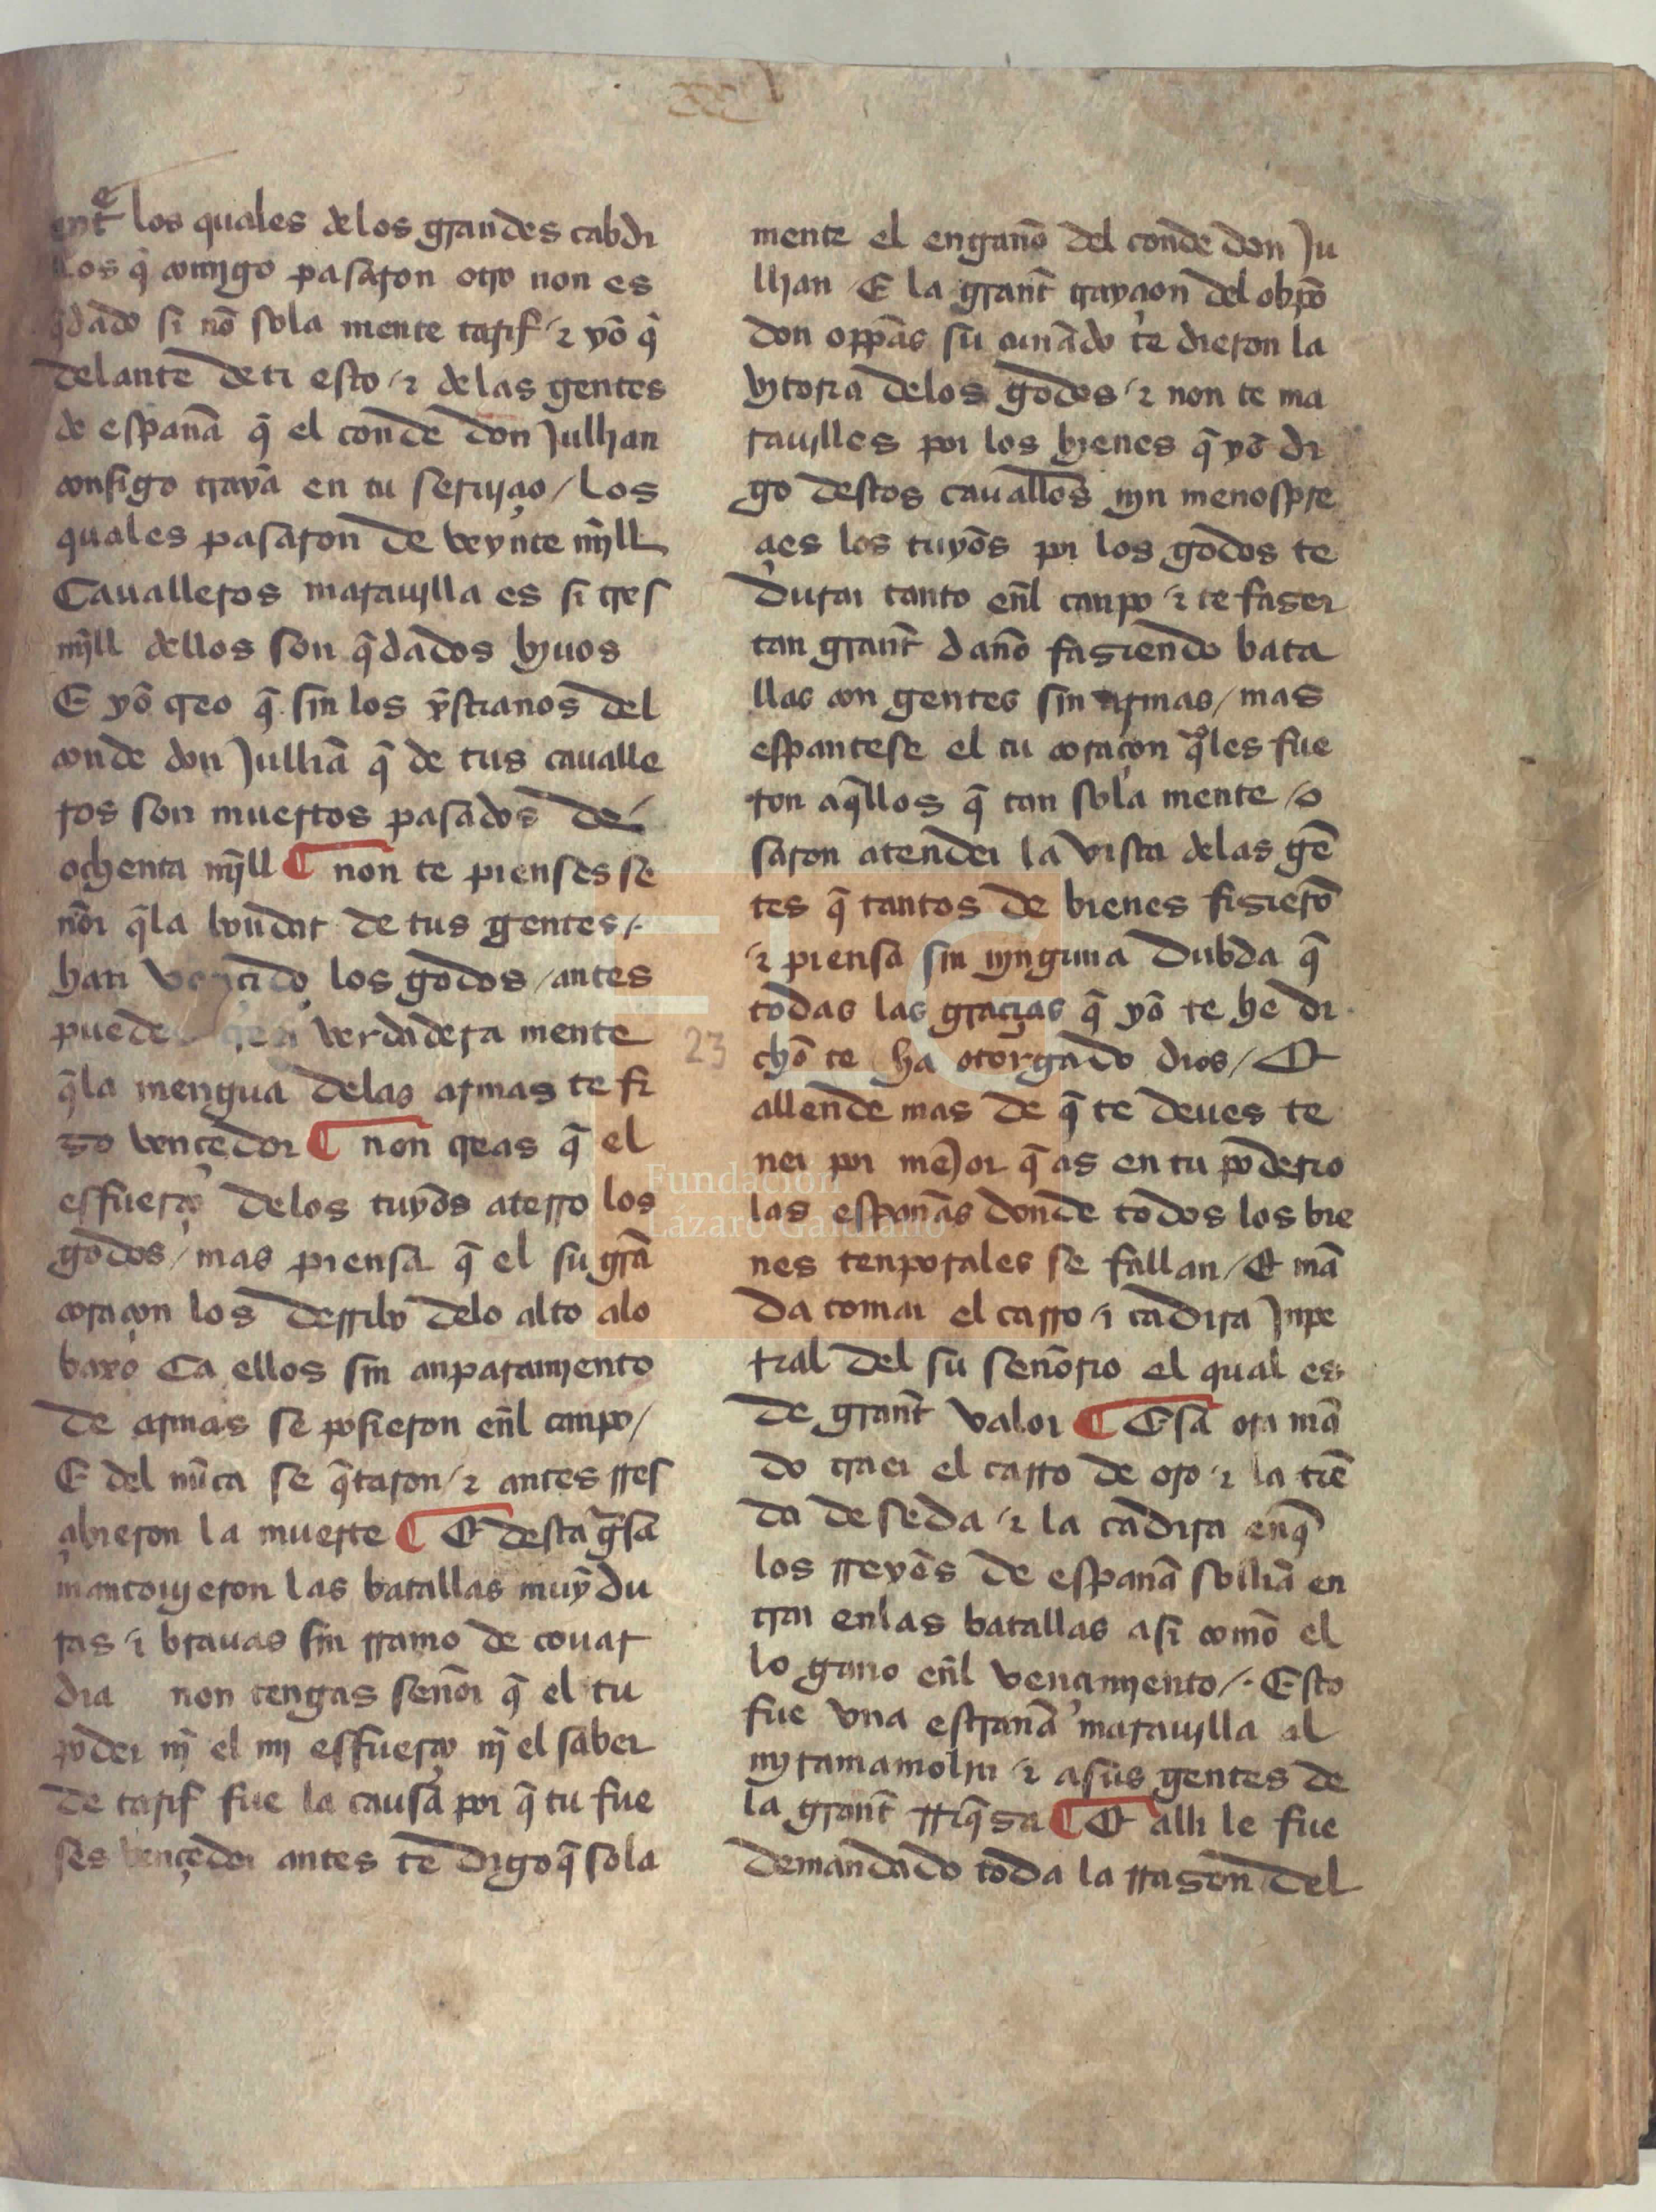 entre los quales delos grandes cabdi
llos q̃ comigo pasaron otro non es
q̃dado si nõ sola mente tarif / ⁊ yo q̃
delante deti esto / ⁊ delas gentes
de españa q̃ el conde don Jullian
consigo traya en tu seruiçio / los
quales pasaron de veynte mỹll
Caualleros marauilla es si tres
mỹll dellos son q̃dados byuos
E yo creo q̃ sin los xp̃stianos del
conde don Julliã q̃ de tus caualle
ros son muertos pasados de
ochenta mỹll ¶ non te pienses se
ñor q̃la bondat de tus gentes /.
han vençido los godos / antes
puedes creer verdadera mente
q̃la mengua delas armas te fi
zo vençedor ¶ non creas q̃ el
esfuerço delos tuyos aterro los
godos / mas piensa q̃ el su grã
coraçon los derribo delo alto alo
baxo Ca ellos sin anparamiento
de armas se posieron eñl canpo /
E del nũca se q̃taron / ⁊ antes rres
çibieron la muerte ¶ Et desta guisa
mantouyeron las batallas muy du
ras ⁊ brauas sin rramo de couar
dia non tengas señor q̃ el tu
poder nĩ el mi esfuerço nĩ el saber
de tarif fue la causa por q̃ tu fue
ses vençedor antes te digo q̃ sola
mente el engaño del conde don Ju
llian E la grant̃ trayçion del obp̃o
don oppãs su cuñado te dieron la
vytoria delos godos / ⁊ non te ma
rauylles por los byenes q̃ yo di
go destos cauallos nin menospre
çies los tuyos por los godos te
durar tanto eñl canpo ⁊ te faser
tan grant̃ daño fasiendo bata
llas con gentes sin armas / mas
espantese el tu coraçon q̃les fue
ron aq̃llos q̃ tan sola mente / o
saron atender la vista delas gẽ
tes q̃ tantos de bienes fisierõ
⁊ piensa sin nynguna dubda q̃
todas las graçias q̃ yo te he di
cho te ha otorgado dios / Et
allende mas de q̃ te deues te
ner por mejor q̃ as en tu poderio
las españas donde todos los bie
nes tenporales se fallan / Et mã
da tomar el carro ⁊ cadira Jnpe
rial del su señorio el qual es
de grant̃ valor ¶ Esa ora mã
do traer el carro de oro ⁊ la tiẽ
da de seda ⁊ la cadira enq̃
los rreyes de españa solliã en
trar enlas batallas asi como el
lo gano eñl vençimiento /. Esto
fue vna estraña marauylla al
myramamolin ⁊ a sus gentes de
la grant̃ rriq̃sa ¶ Et alli le fue
demandado toda la rrason del
23
Fundación
Lázaro Galdiano